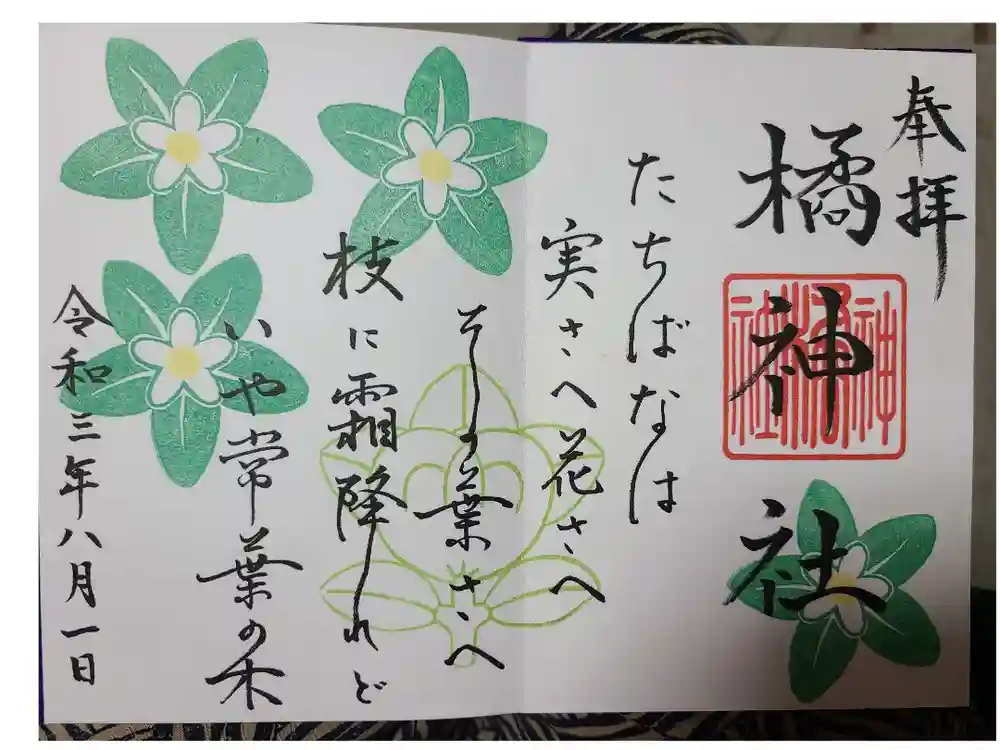 奉拝
橘神社
たちばなは
実さへ花さへ
その葉さへ
枝に霜降れど
いや常葉の木
令和三年八月一日